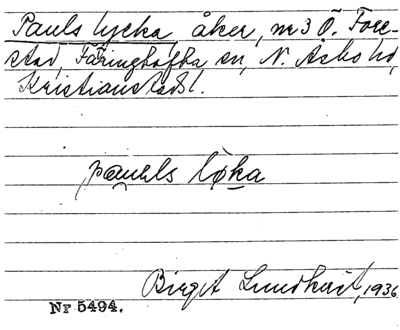 Pauls lycka åker, nr 3 Ö. Fore-
stad, Färingtofta sn, N. Åsbo hd,
Kristianstads l.
pauls løka
Birgit Lundkvist, 1936
Nr 5494.